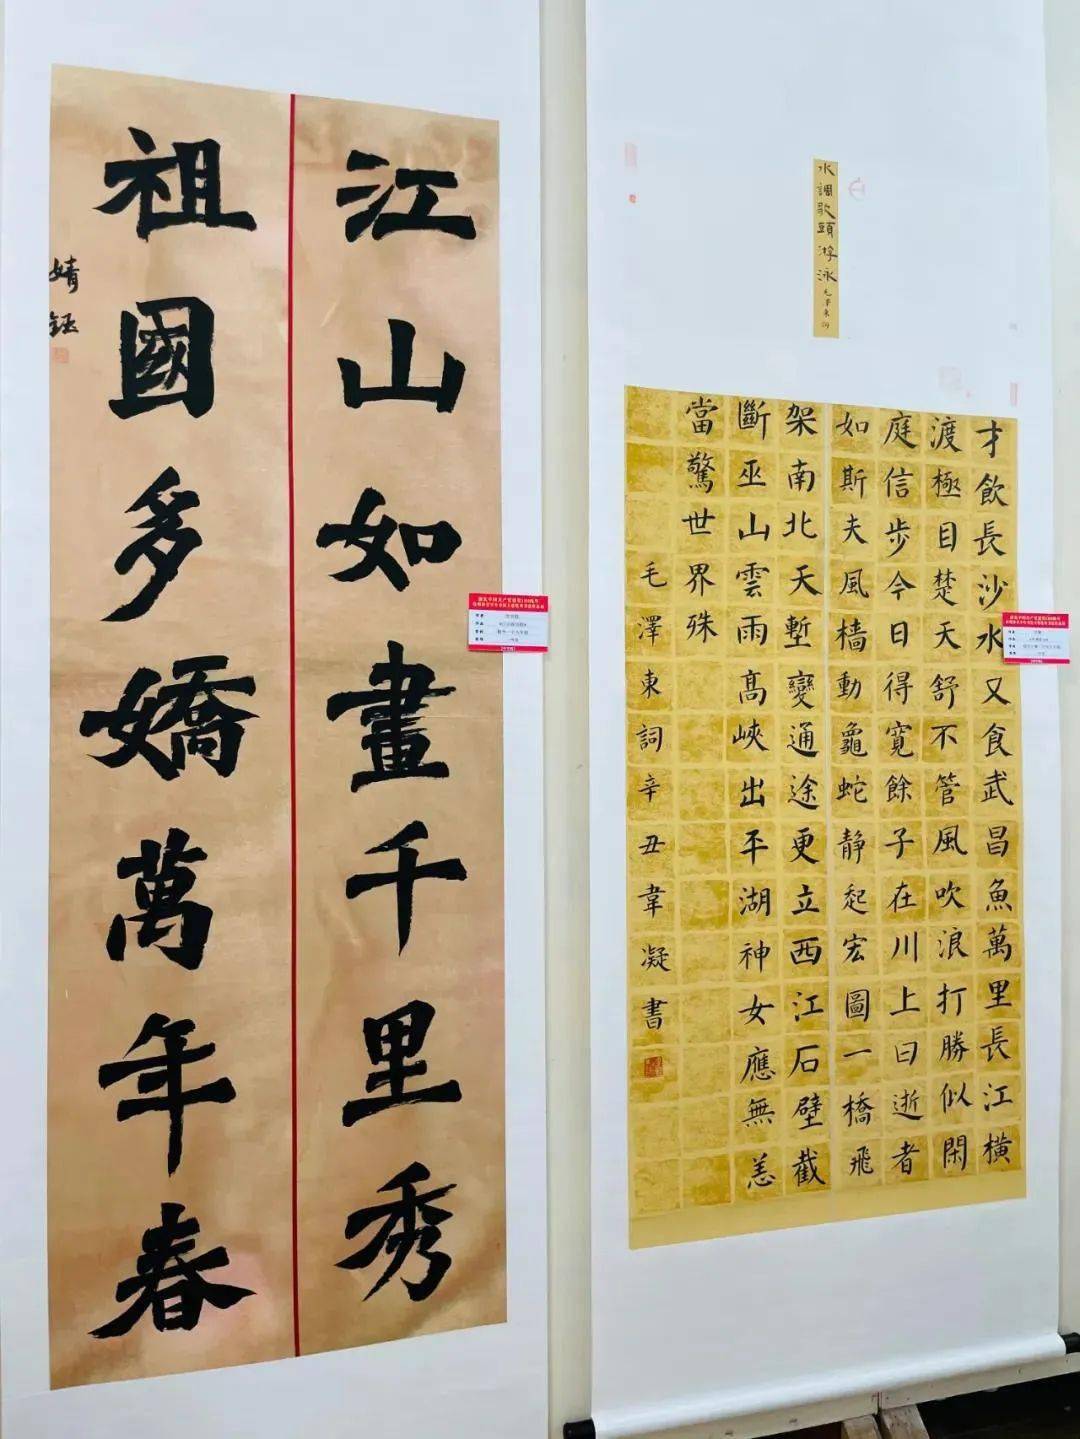 江山如畫千里秀
祖國多嬌萬年春
婧鈺
水調歌頭 游泳
才飲長沙水又食武昌魚萬里長江橫
渡極目楚天舒不管風吹浪打勝似閑
庭信步今日得寬餘子在川上曰逝者
如斯夫風檣動龜蛇静起宏圖一橋飛
架南北天塹變通途更立西江石壁截
斷巫山雲雨髙峽出平湖神女應無恙
當驚世界殊
毛澤東詞辛丑韋凝書